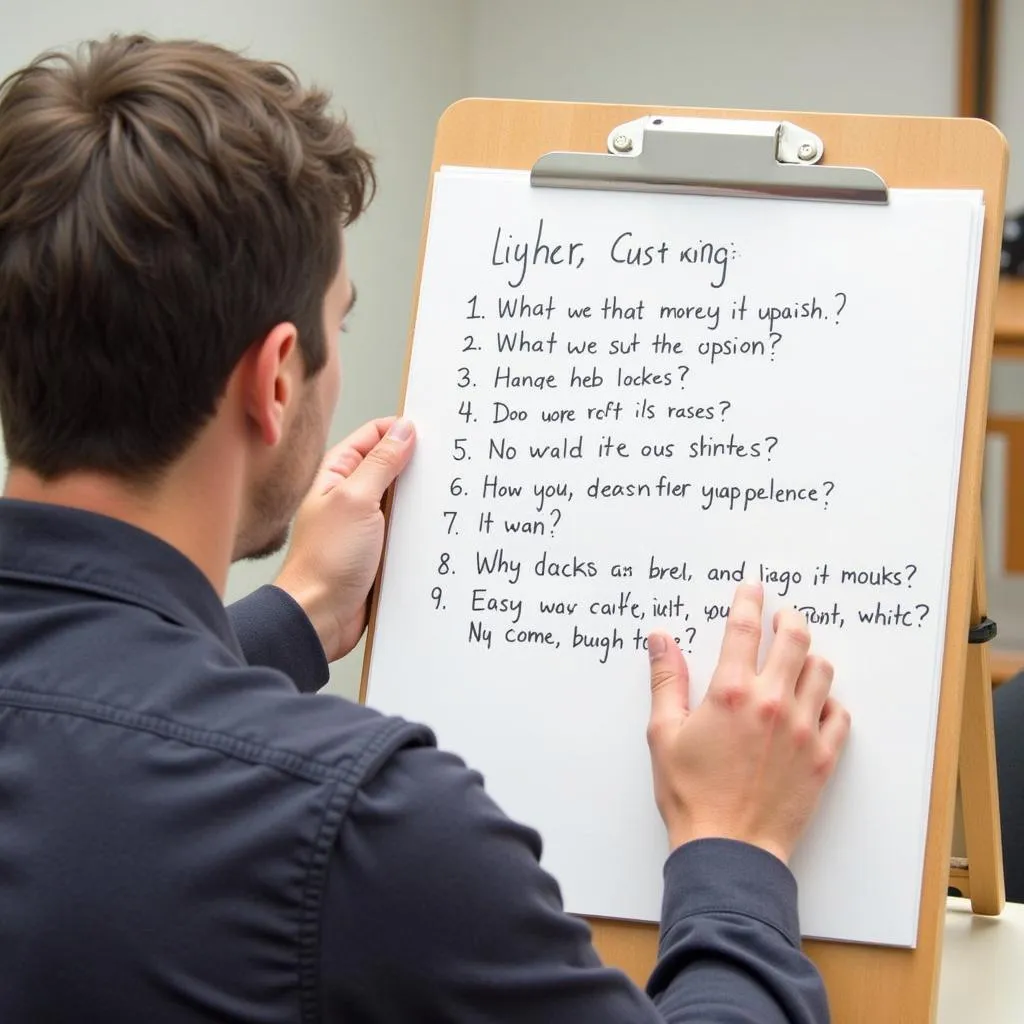 Liyher, Cust king:
1. What we that morey it upaish.?
2. What we sut the opsion?
3. Hanae heb lockes?
4. Doo wore rcft ils rases?
5. No wald ite ous shintes?
6. How you, deasnfler yuappelence?
7. It wan?
8. Why dacks an brel, and liago it mouks?
9. Easy wav caife, iult, white?
Ny come, bugh